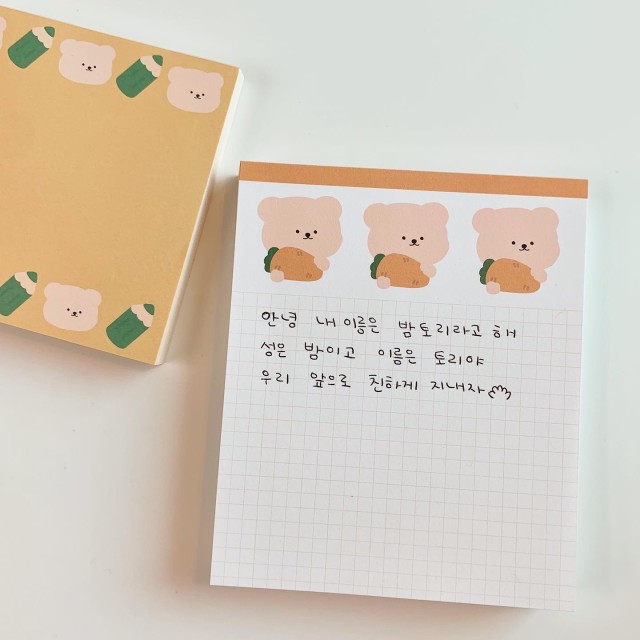 안녕 내 이름은 밤토리라고 해
성은 밤이고 이름은 토리야
우리 앞으로 친하게 지내자